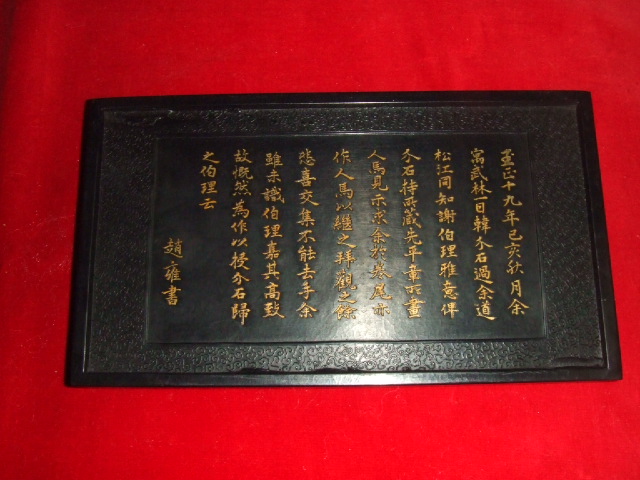 至正十九年己亥秋月余
寓武林一日韓介石過余道
松江同知謝伯理雅意俾
介石持所藏先平章所畫
人馬見示求余於卷尾亦
作人馬以繼之拜觀之餘
悲喜交集不能去手余
雖未識伯理嘉其高致
故慨然為作以授介石歸
之伯理云
趙雍書